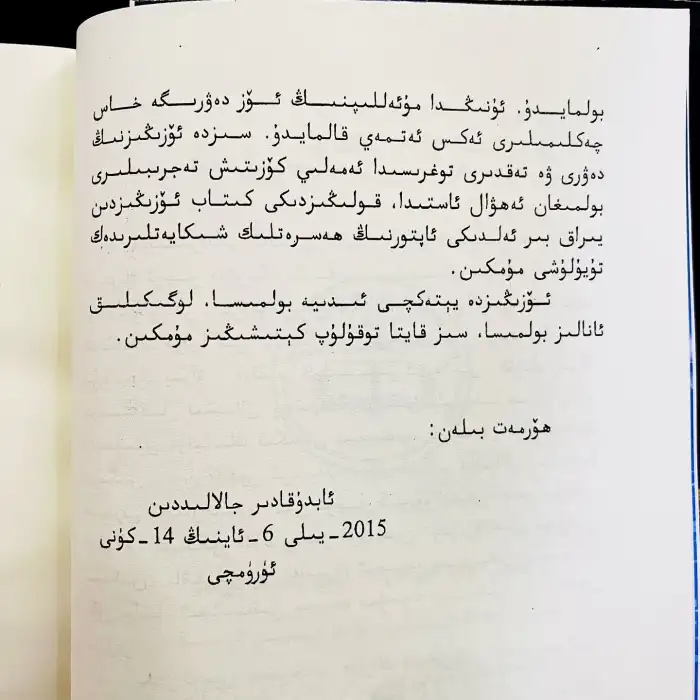 بولمايدۇ. ئۇنىڭدا مۇئەللىپنىڭ ئۆز دەۋرىگە خاس
چەكلىمىلىرى ئەكس ئەتمەي قالمايدۇ. سىزدە ئۆزىڭىزنىڭ
دەۋرى ۋە تەقدىرى توغرىسىدا ئەمەلىي كۆزىتىش تەجرىبىلىرى
بولمىغان ئەھۋال ئاستىدا، قولىڭىزدىكى كىتاب ئۆزىڭىزدىن
يىراق بىر ئەلدىكى ئاپتورنىڭ ھەسرەتلىك شىكايەتلىرىدەك
تۇيۇلۇشى مۇمكىن.
ئۆزىڭىزدە يېتەكچى ئىدىيە بولمىسا، لوگىكىلىق
ئانالىز بولمىسا، سىز قايتا توقۇلۇپ كېتىشىڭىز مۇمكىن.
ھۆرمەت بىلەن:
ئابدۇقادىر جالالىددىن
2015-يىلى 6-ئاينىڭ 14-كۈنى
ئۈرۈمچى